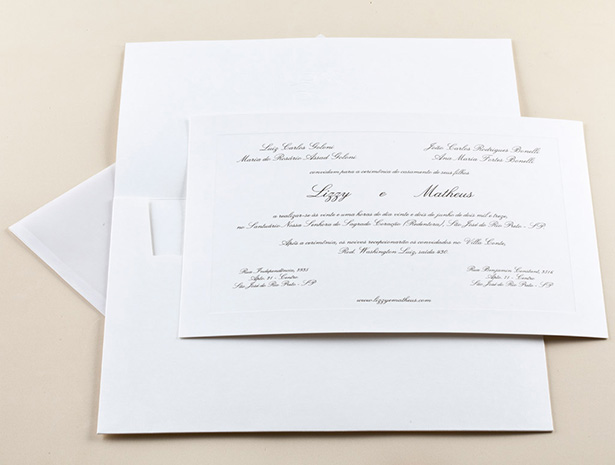 Luiz Carlos Goloni
Maria do Rosário Assad Goloni
João Carlos Rodrigues Bonelli
Ana Maria Bonelli
convidam para a cerimônia de casamento de seus filhos
Lizzy e Matheus
a realizar-se às vinte e uma horas do dia vinte e dois de junho de dois mil e treze,
no Santuário Nossa Senhora do Sagrado Coração (Redentora), São José do Rio Preto - SP
Após a cerimônia, os noivos recepcionarão os convidados no Villa Conte,
Rod. Washington Luiz, saída 430.
Rua Independência,
Apto. 21 - Centro
São José do Rio Preto - SP
Rua Benjamin Constant,
Apto. - Centro
São José do Rio Preto - SP
www.lizzyematheus.com